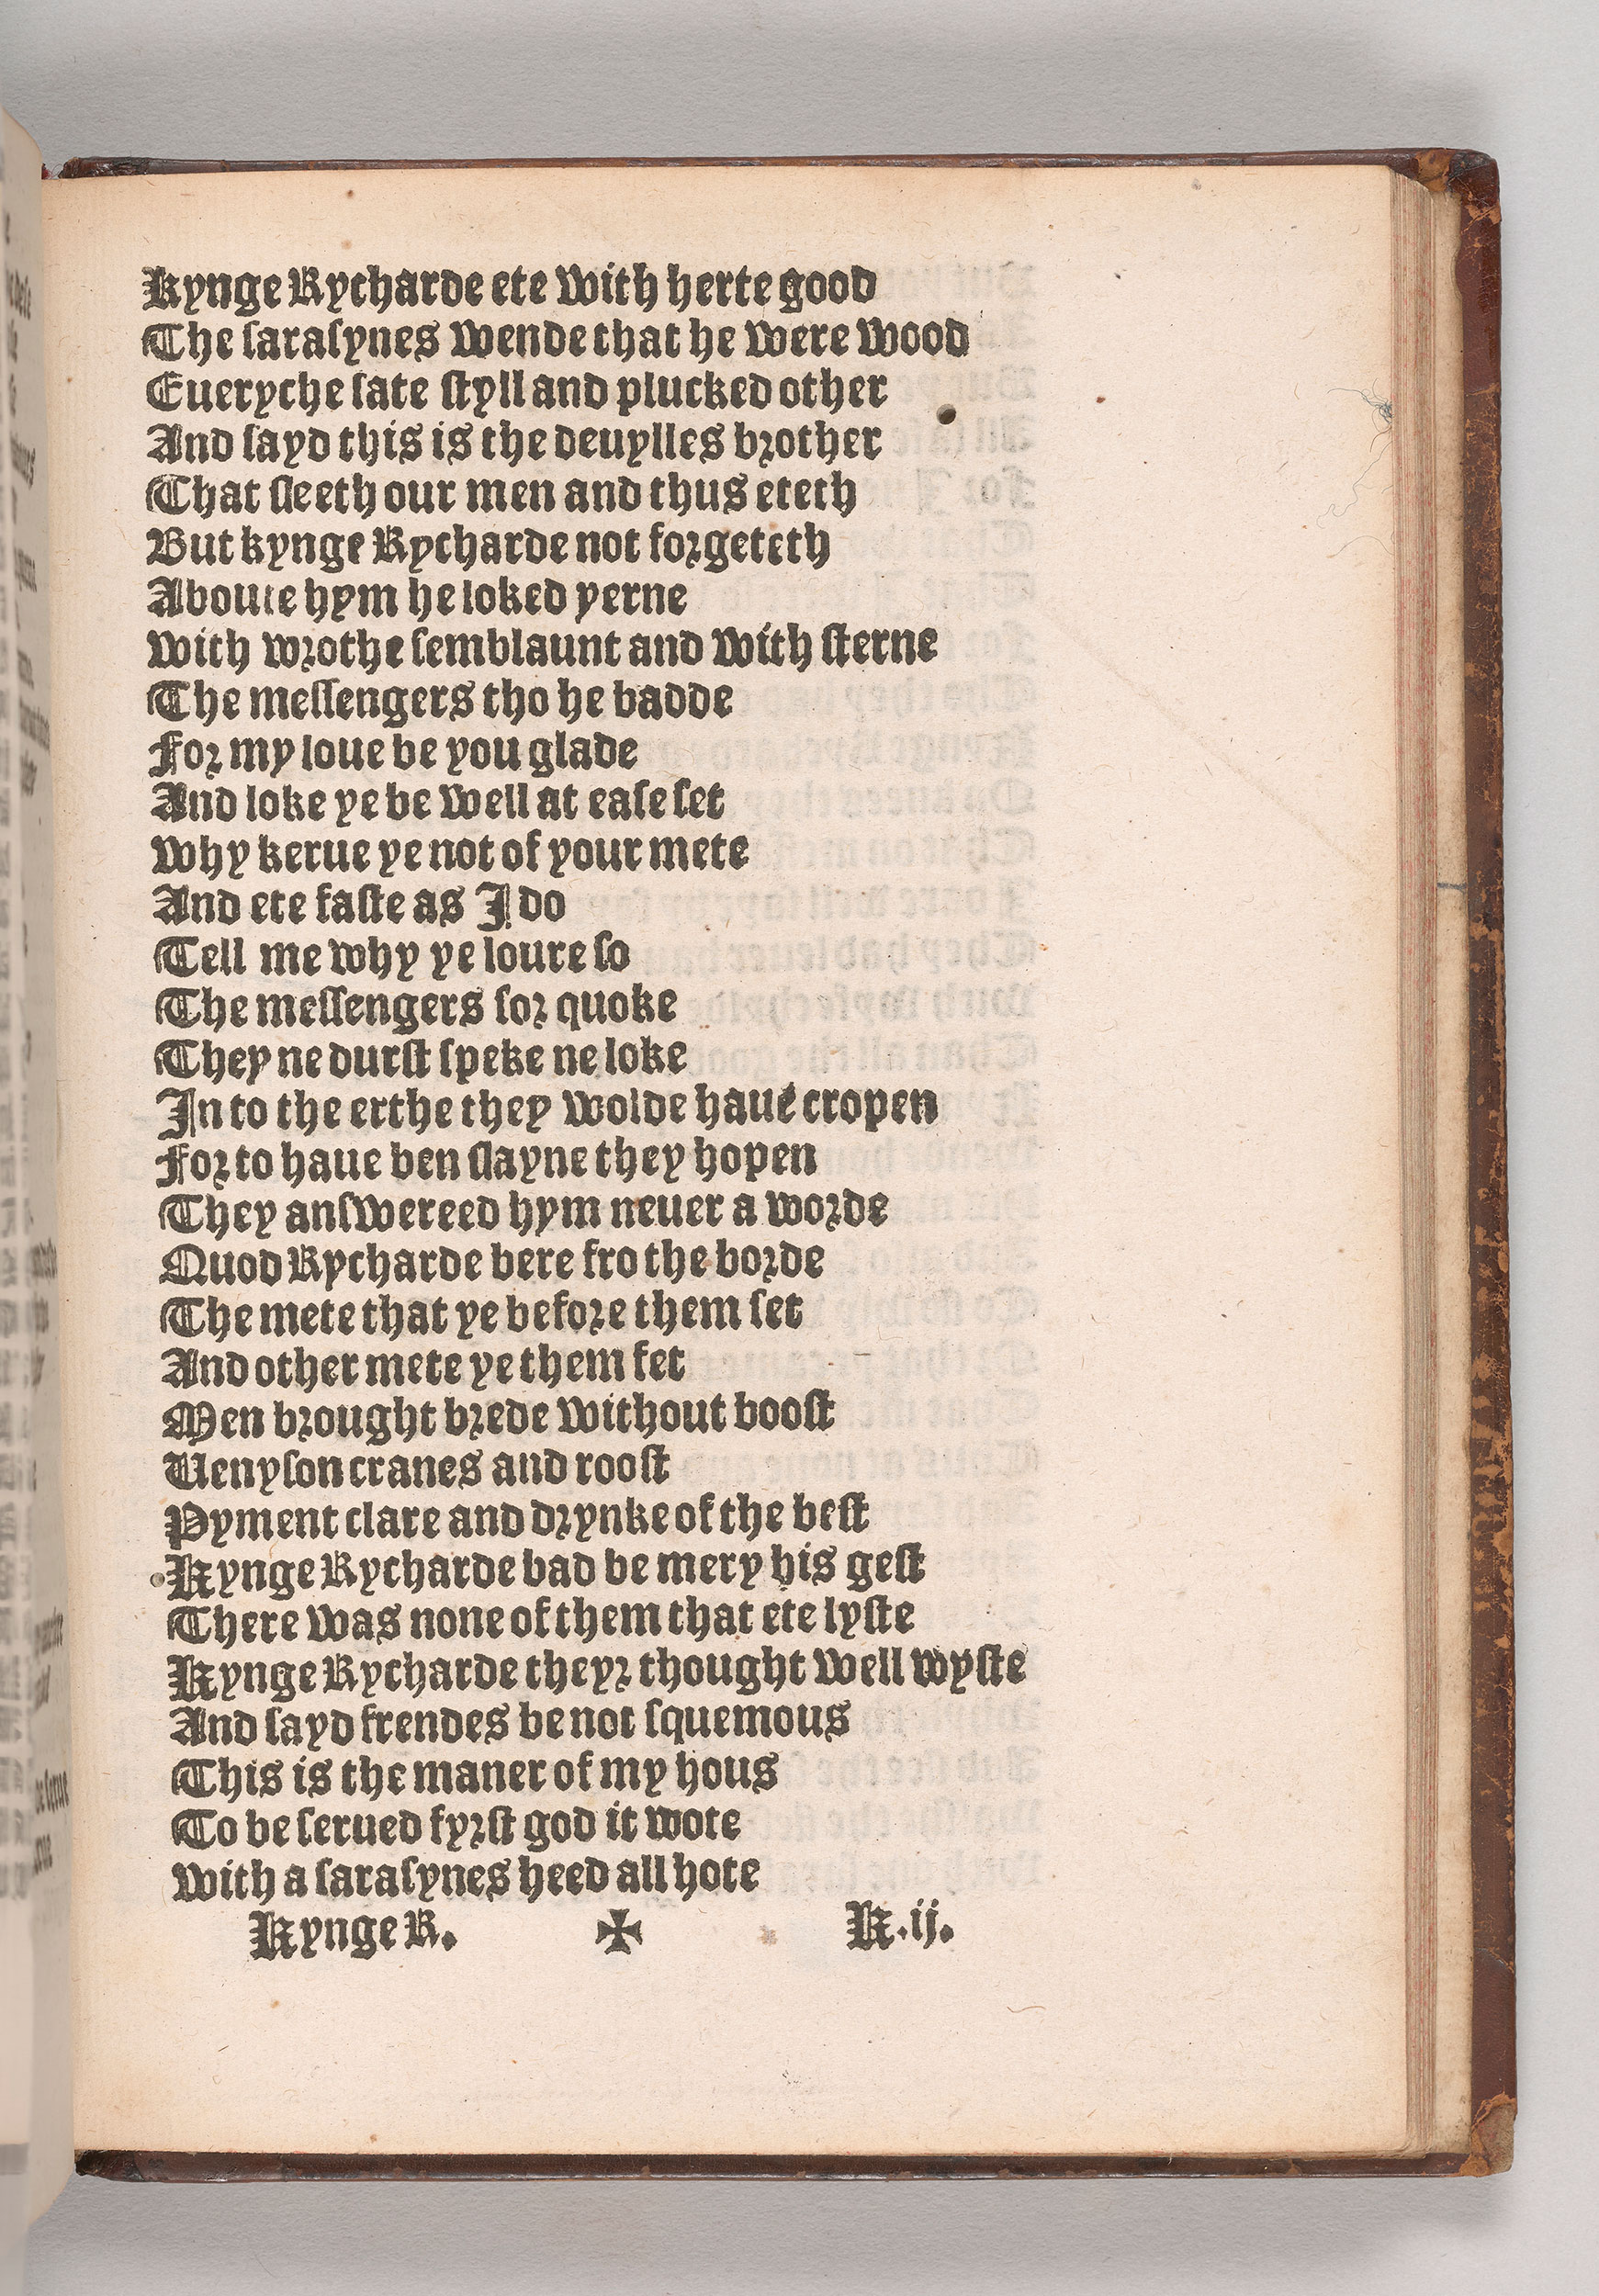 Kynge Rycharde ete with herte good
The ſaraſynes wende that he were wood
Eueryche ſate ſtyll and plucked other
And ſayd this is the deuylles brother
That ſleeth our men and thus eteth
But kynge Rycharde not forgeteth
Aboute hym he loked yerne
With wrothe ſemblaunt and with ſterne
The meſſengers tho he badde
For my loue be you glade
And loke ye be well at eaſe ſet
Why kerue ye not of your mete
And ete faſte as I do
Tell me why ye loure ſo
The meſſengers ſor quoke
They ne durſt ſpeke ne loke
In to the erthe they wolde haue cropen
For to haue ben ſlayne they hopen
They anſwereed hym neuer a worde
Quod Rycharde bere fro the borde
The mete that ye before them ſet
And other mete ye them fet
Men brought brede without booſt
Uenyſon cranes and rooſt
Pyment clare and drynke of the beſt
Kynge Rycharde bad be mery his geſt
There was none of them that ete lyſte
Kynge Rycharde theyr thought well wyſte
And ſayd frendes be not ſquemous
This is the maner of my hous
To be ſerued fyrſt god it wote
With a ſaraſynes heed all hote
Kynge R. ✠ K.ij.